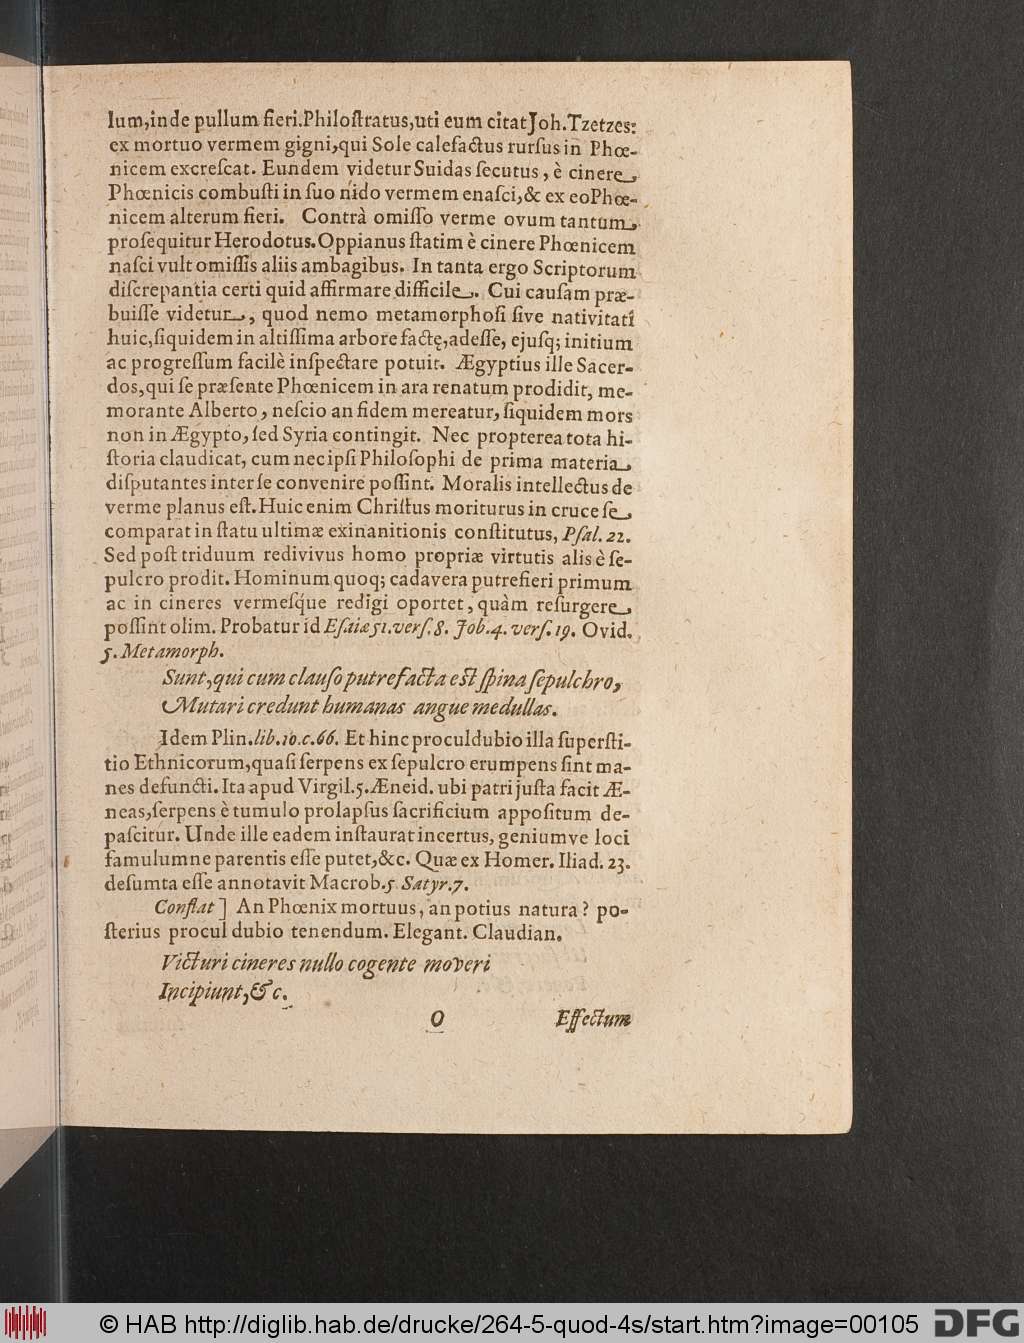 lum,inde pullum fieri.Philoſtratus,uti eum citat Joh.Tzetzes:
ex mortuo vermem gigni,qui Sole calefactus rurſus in Phœ-
nicem excreſcat. Eundem videtur Suidas ſecutus, è cinere
Phœnicis combuſti in ſuo nido vermem enaſci,& ex eo Phœ-
nicem alterum fieri. Contrà omiſſo verme ovum tantum
proſequitur Herodotus. Oppianus ſtatim è cinere Phœnicem
naſci vult omiſſis aliis ambagibus. In tanta ergo Scriptorum
diſcrepantia certi quid affirmare difficile. Cui cauſam præ-
buiſſe videtur, quod nemo metamorphoſi ſive nativitati
huic,ſiquidem in altiſſima arbore factę,adeſſe, ejuſq; initium
ac progreſſum facilè inſpectare potuit. Ægyptius ille Sacer-
dos,qui ſe præſente Phœnicem in ara renatum prodidit, me-
morante Alberto, neſcio an fidem mereatur, ſiquidem mors
non in Ægypto, ſed Syria contingit. Nec propterea tota hi-
ſtoria claudicat, cum nec ipſi Philoſophi de prima materia
diſputantes inter ſe convenire poſſint. Moralis intellectus de
verme planus eſt. Huic enim Chriſtus moriturus in cruce ſe
comparat in ſtatu ultimæ exinanitionis conſtitutus, Pſal. 22.
Sed poſt triduum redivivus homo propriæ virtutis alis è ſe-
pulcro prodit. Hominum quoq; cadavera putrefieri primum
ac in cineres vermeſque redigi oportet, quàm reſurgere
poſſint olim. Probatur id Eſaiæ 51.verſ.8. Job.4. verſ.19. Ovid.
5. Metamorph.
Sunt, qui cum clauſo putrefacta eſt ſpina ſepulchro,
Mutari credunt humanas angue medullas.
Idem Plin. lib.10.c.66. Et hinc proculdubio illa ſuperſti-
tio Ethnicorum,quaſi ſerpens ex ſepulcro erumpens ſint ma-
nes defuncti. Ita apud Virgil.5.Æneid. ubi patri juſta facit Æ-
neas,ſerpens è tumulo prolapſus ſacrificium appoſitum de-
paſcitur. Unde ille eadem inſtaurat incertus, geniumve loci
famulumne parentis eſſe putet,&c. Quæ ex Homer. Iliad. 23.
deſumta eſſe annotavit Macrob.5 Satyr.7.
Conflat ] An Phœnix mortuus, an potius natura? po-
ſterius procul dubio tenendum. Elegant. Claudian.
Victuri cineres nullo cogente moveri
Incipiunt, & c.
O Effectum
© HAB http://diglib.hab.de/drucke/264-5-quod-4s/start.htm?image=00105
DFG